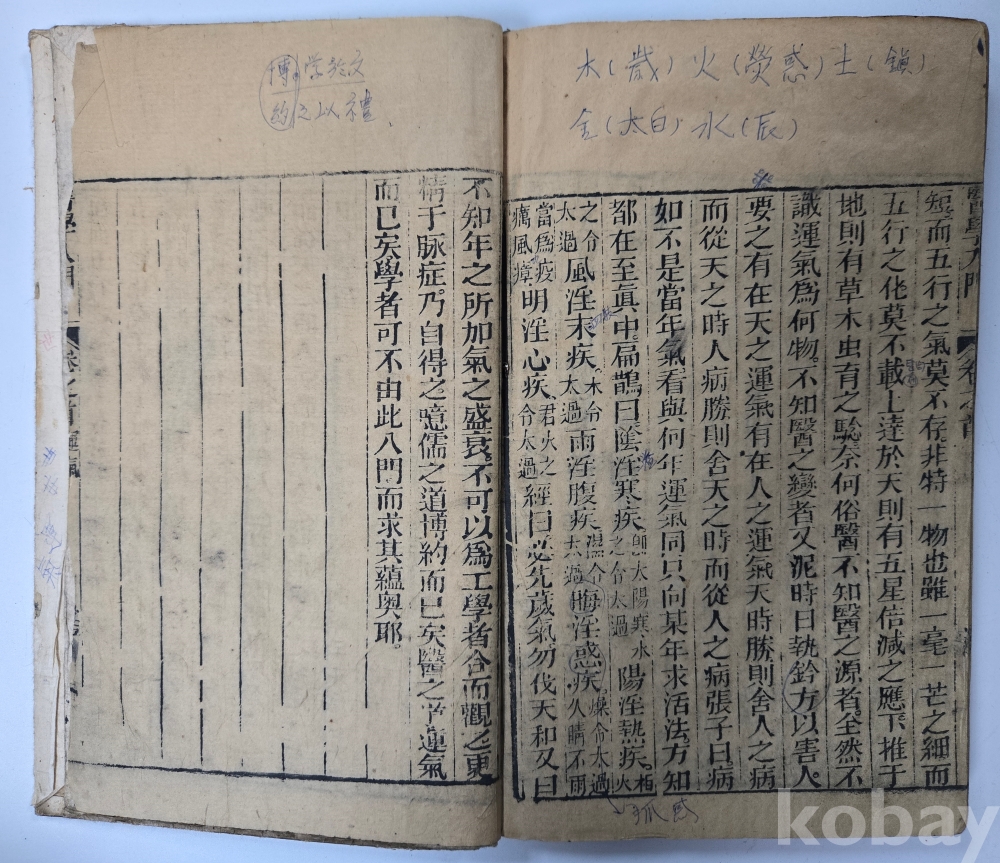 木(歲) 火(熒惑) 土(鎭)
金(太白) 水(辰)
短而五行之氣莫不存非特一物也雖一毫一芒之細而
五行之化莫不載上達於天則有五星倍減之應下推于
地則有草木虫育之驗奈何俗醫不知醫之源者全然不
識運氣爲何物不知醫之變者又泥時日執鈐方以害人
要之有在天之運氣有在人之運氣天時勝則舍人之病
而從天之時人病勝則舍天之時而從人之病張子曰病
如不是當年氣看與何年運氣同只向某年求活法方知
都在至眞中扁鵲曰陰淫寒疾
太陽寒水
之令太過
陽淫熱疾
相火
之令太過
風淫末疾
木令
太過
雨淫腹疾
濕令
太過
晦淫惑疾
燥令太過
久晴不雨
當爲疫
癘風瘴
明淫心疾
君火之
令太過
經曰必先歲氣勿伐天和又曰
孤
博學於文
約之以禮
不知年之所加氣之盛衰不可以爲工學者合而觀之更
精于脉症乃自得之噫儒之道博約而已矣醫之道運氣
而已矣學者可不由此八門而求其蘊奧耶
醫學入門
卷之首
運氣
醫學入門
卷之首
kobay